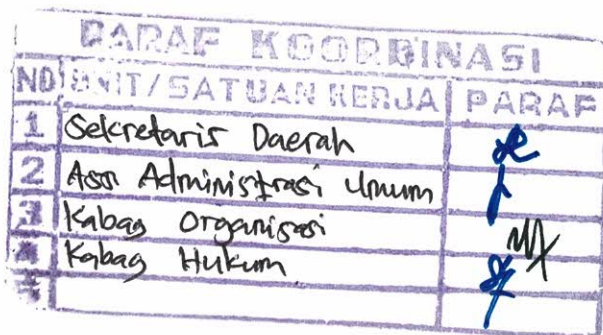 PARAF KOORDINASI
NO UNIT/SATUAN KERJA PARAF
1 Sekretaris Daerah
2 Asn Administrasi Umum
3 Kabag Organisasi
4 Kabag Hukum
5